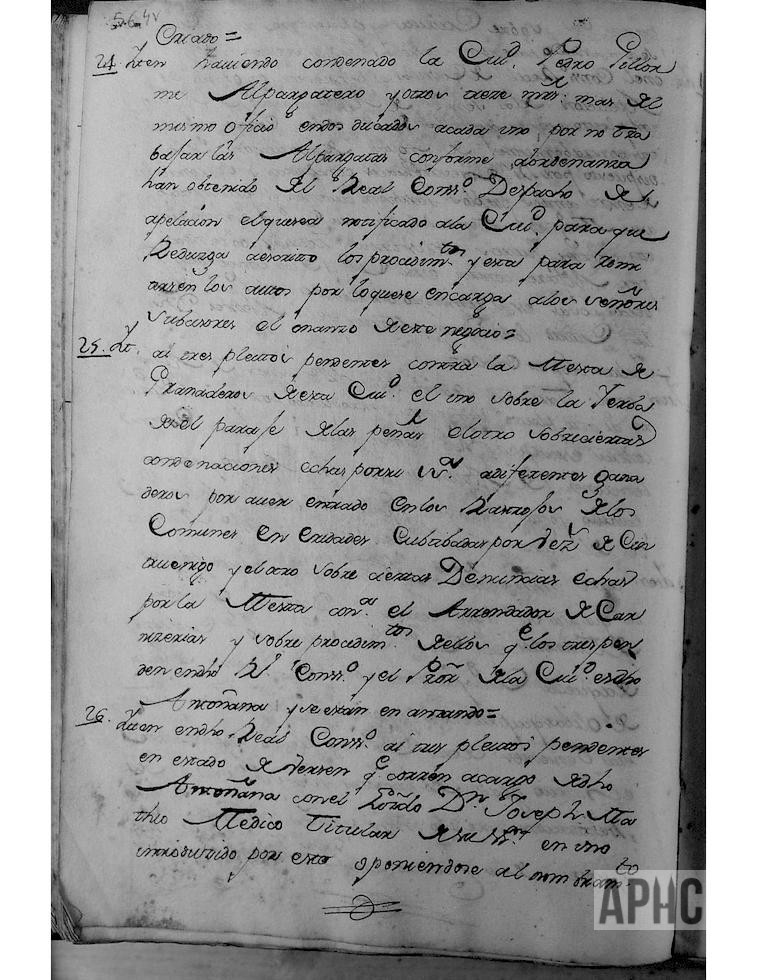 5.6.4v
Criado =
24. Iten haviendo condenado la Ciud. Pedro Guillor
me Alpargatero y otros trece mrs. mas del
mismo oficio endos ducados acada vno por no tra
bajar las Alpargatas conforme a ordenanza
han obtenido del Real Conso. Despacho de
apelacion el que sea notificado ala Ciud. para que
Reduzga aescrito los procedimtos. y esta para remi
tirsen los autos por lo que se encarga alos señores
subcesores el onanzo de este negocio =
25. It. ai tres pleitos pendentes contra la Mesta de
Ganaderos de esta Ciud. el vno sobre la Yerba
del paraje de las penas el otro sobre ciertas
condenaciones echas por su Sa. a diferentes gana
deros por aver entrado en los Rastrojos de los
Comunes en eredades Cultibadas por Vezs. de Cin
truenigo y el otro sobre ciertas Denuncias echas
por la Mesta conra. el Arrendador de Car
nizerias y sobre procedimtos. de ellos qe. los tres pen
den endho Rl. Conso. y el Pror. de la Ciud. es dho
Antoñana y se estan en antando =
26. Iten endho Real Conso. ai tres pleitos pendentes
en estado de Versen qe. corren acargo de dho
Antoñana con el Lizdo Dn. Joseph Ma
theo Medico Titular de su en vno
introducido por esto oponiendose al nombramto.
APHC